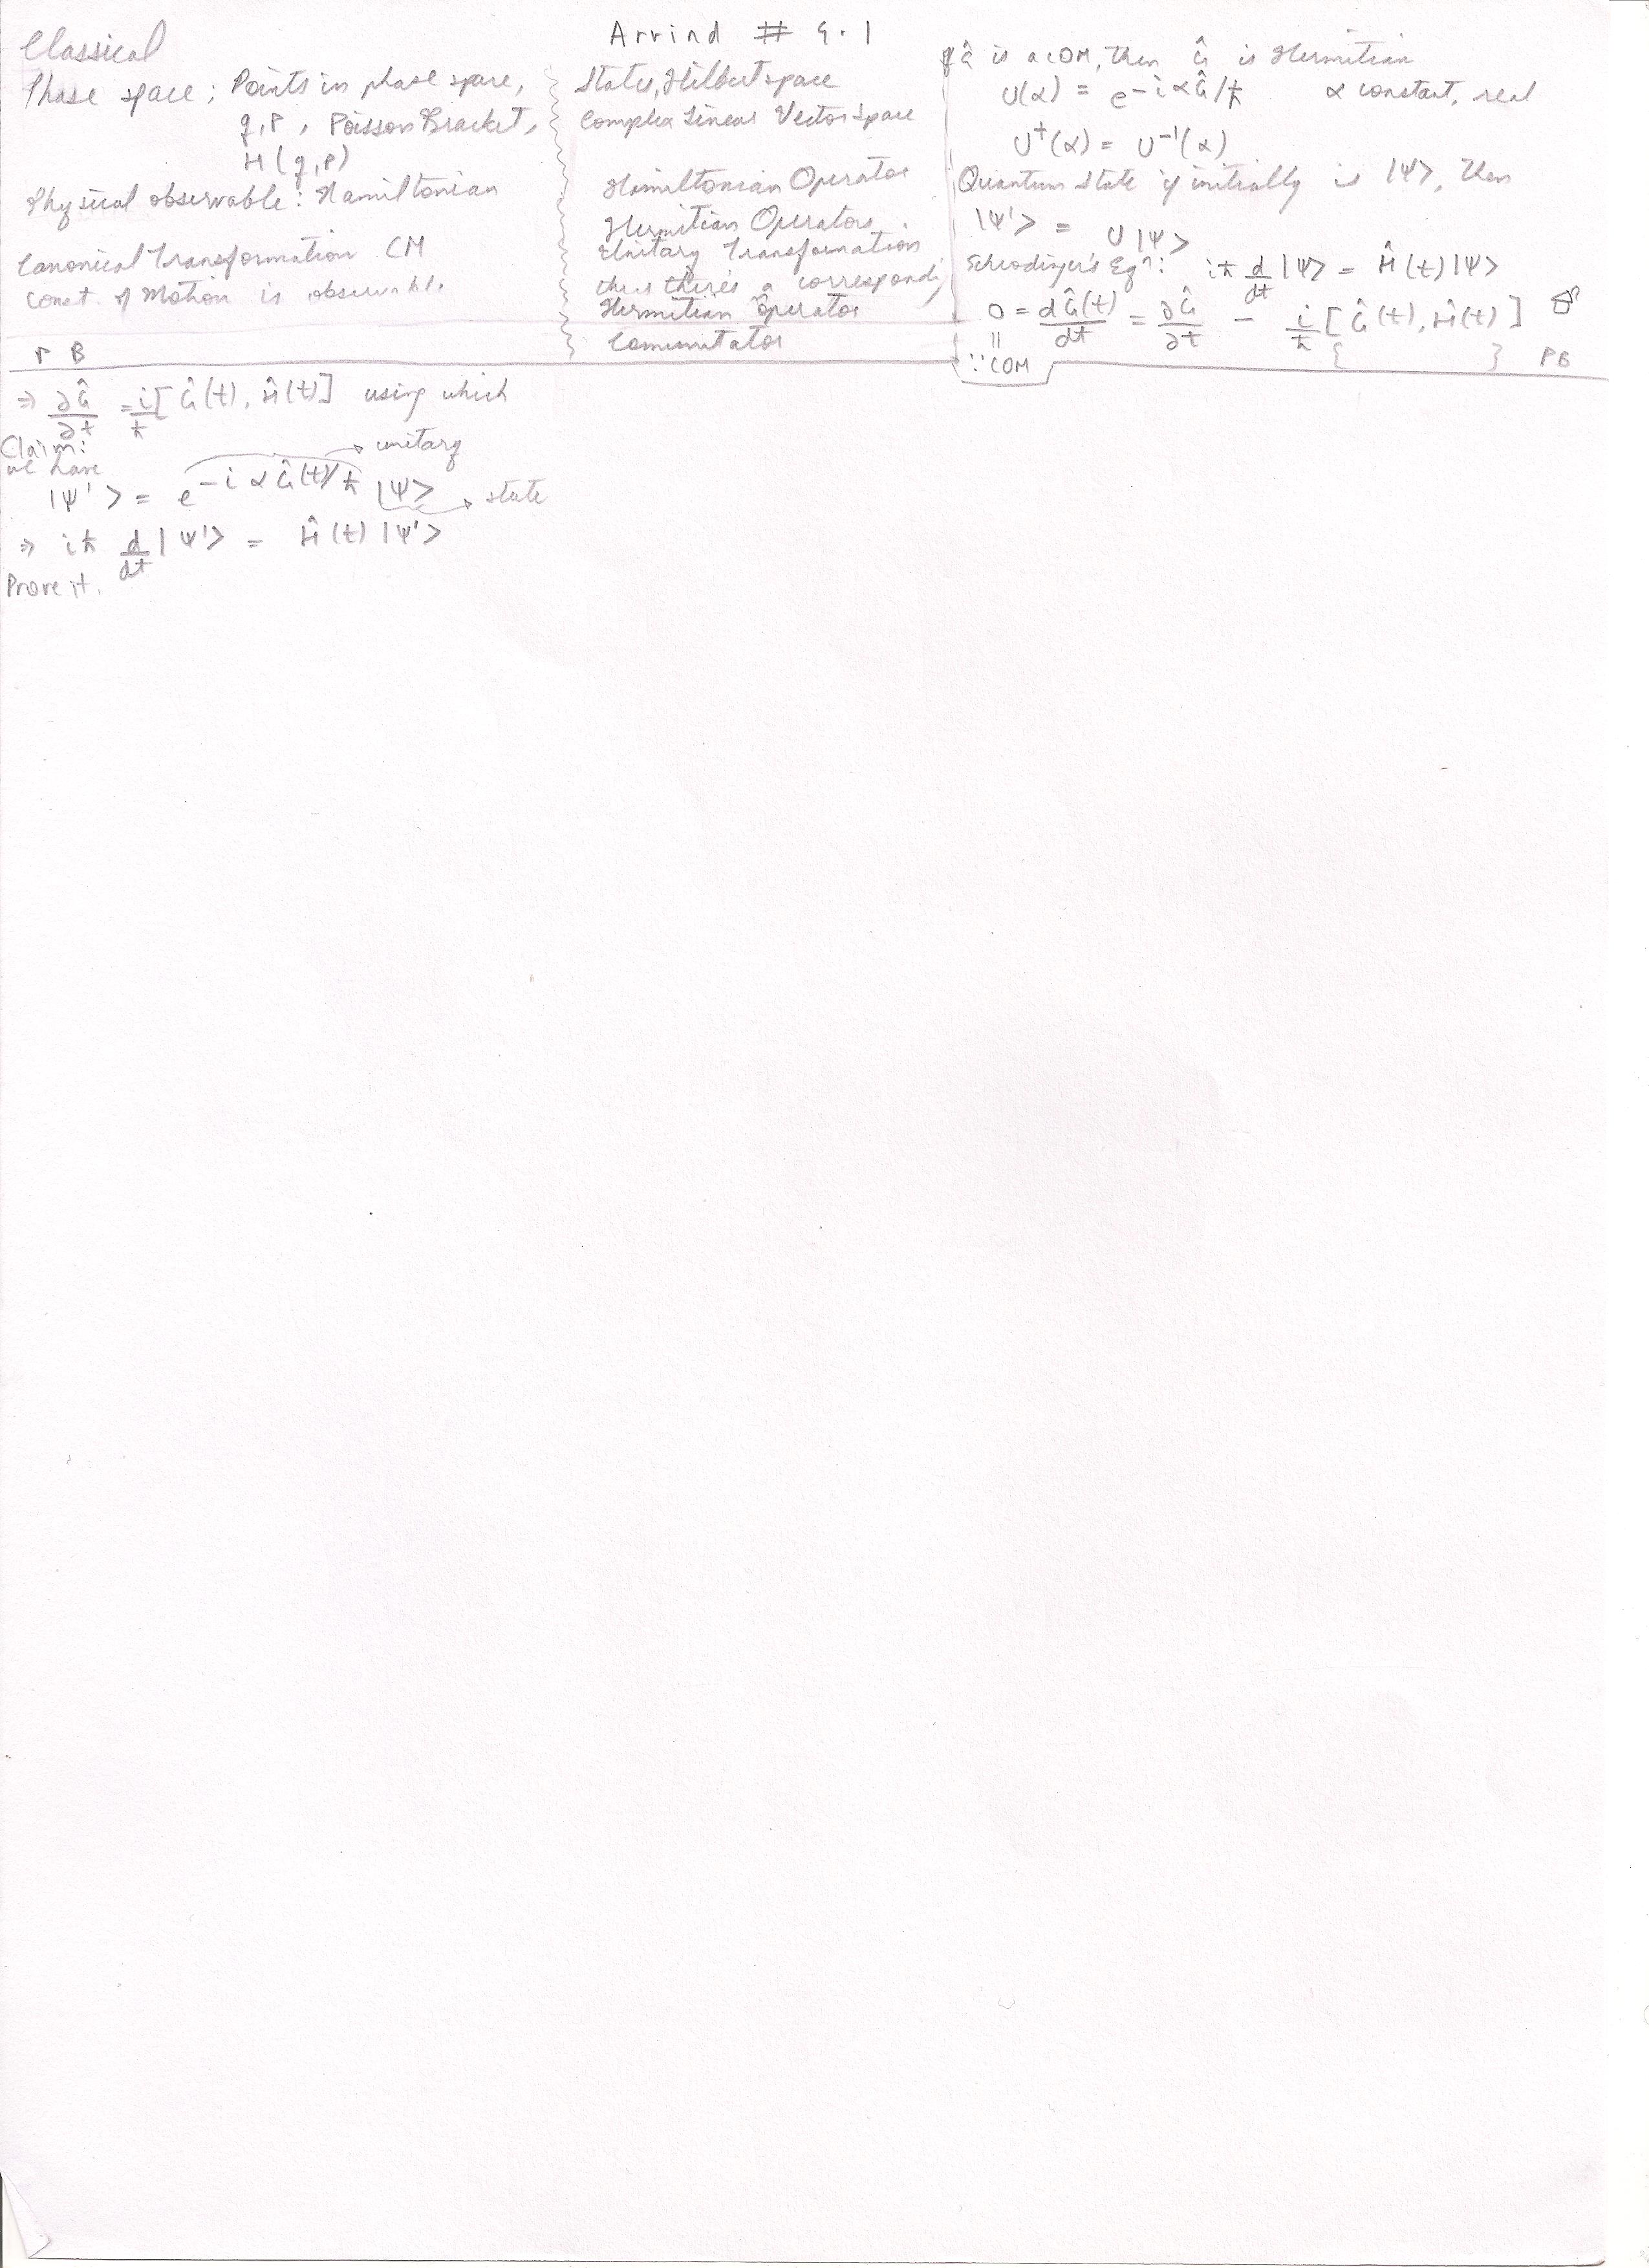 Arvind # 9.1
Classical
Phase space; Points in phase space,
q,p, Poisson Bracket,
H(q,p)
Physical observable: Hamiltonian
Canonical Transformation CM
Const. of Motion is observable.
P B
States, Hilbert space
Complex Linear Vector Space
Hamiltonian Operator
Hermitian Operators.
Unitary Transformation
thus there's a correspondg
Hermitian Operator
Commutator
If Ĝ is a COM, then Ĝ is Hermitian
U(α) = e^{-iαĜ/ħ} α constant, real
U†(α) = U⁻¹(α)
Quantum State if initially is |Ψ>, then
|Ψ'> = U|Ψ>
Schrodinger's Eqn: iħ d/dt |Ψ> = Ĥ(t)|Ψ>
0 = dĜ(t)/dt = ∂Ĝ/∂t - i/ħ [Ĝ(t), Ĥ(t)]
∵ COM { } PB
⇒ ∂Ĝ/∂t = i/ħ [Ĝ(t), Ĥ(t)] using which
Claim:
we have → unitary
|Ψ'> = e^{-iαĜ(t)/ħ} |Ψ> → state
⇒ iħ d/dt |Ψ'> = Ĥ(t) |Ψ'>
Prove it.